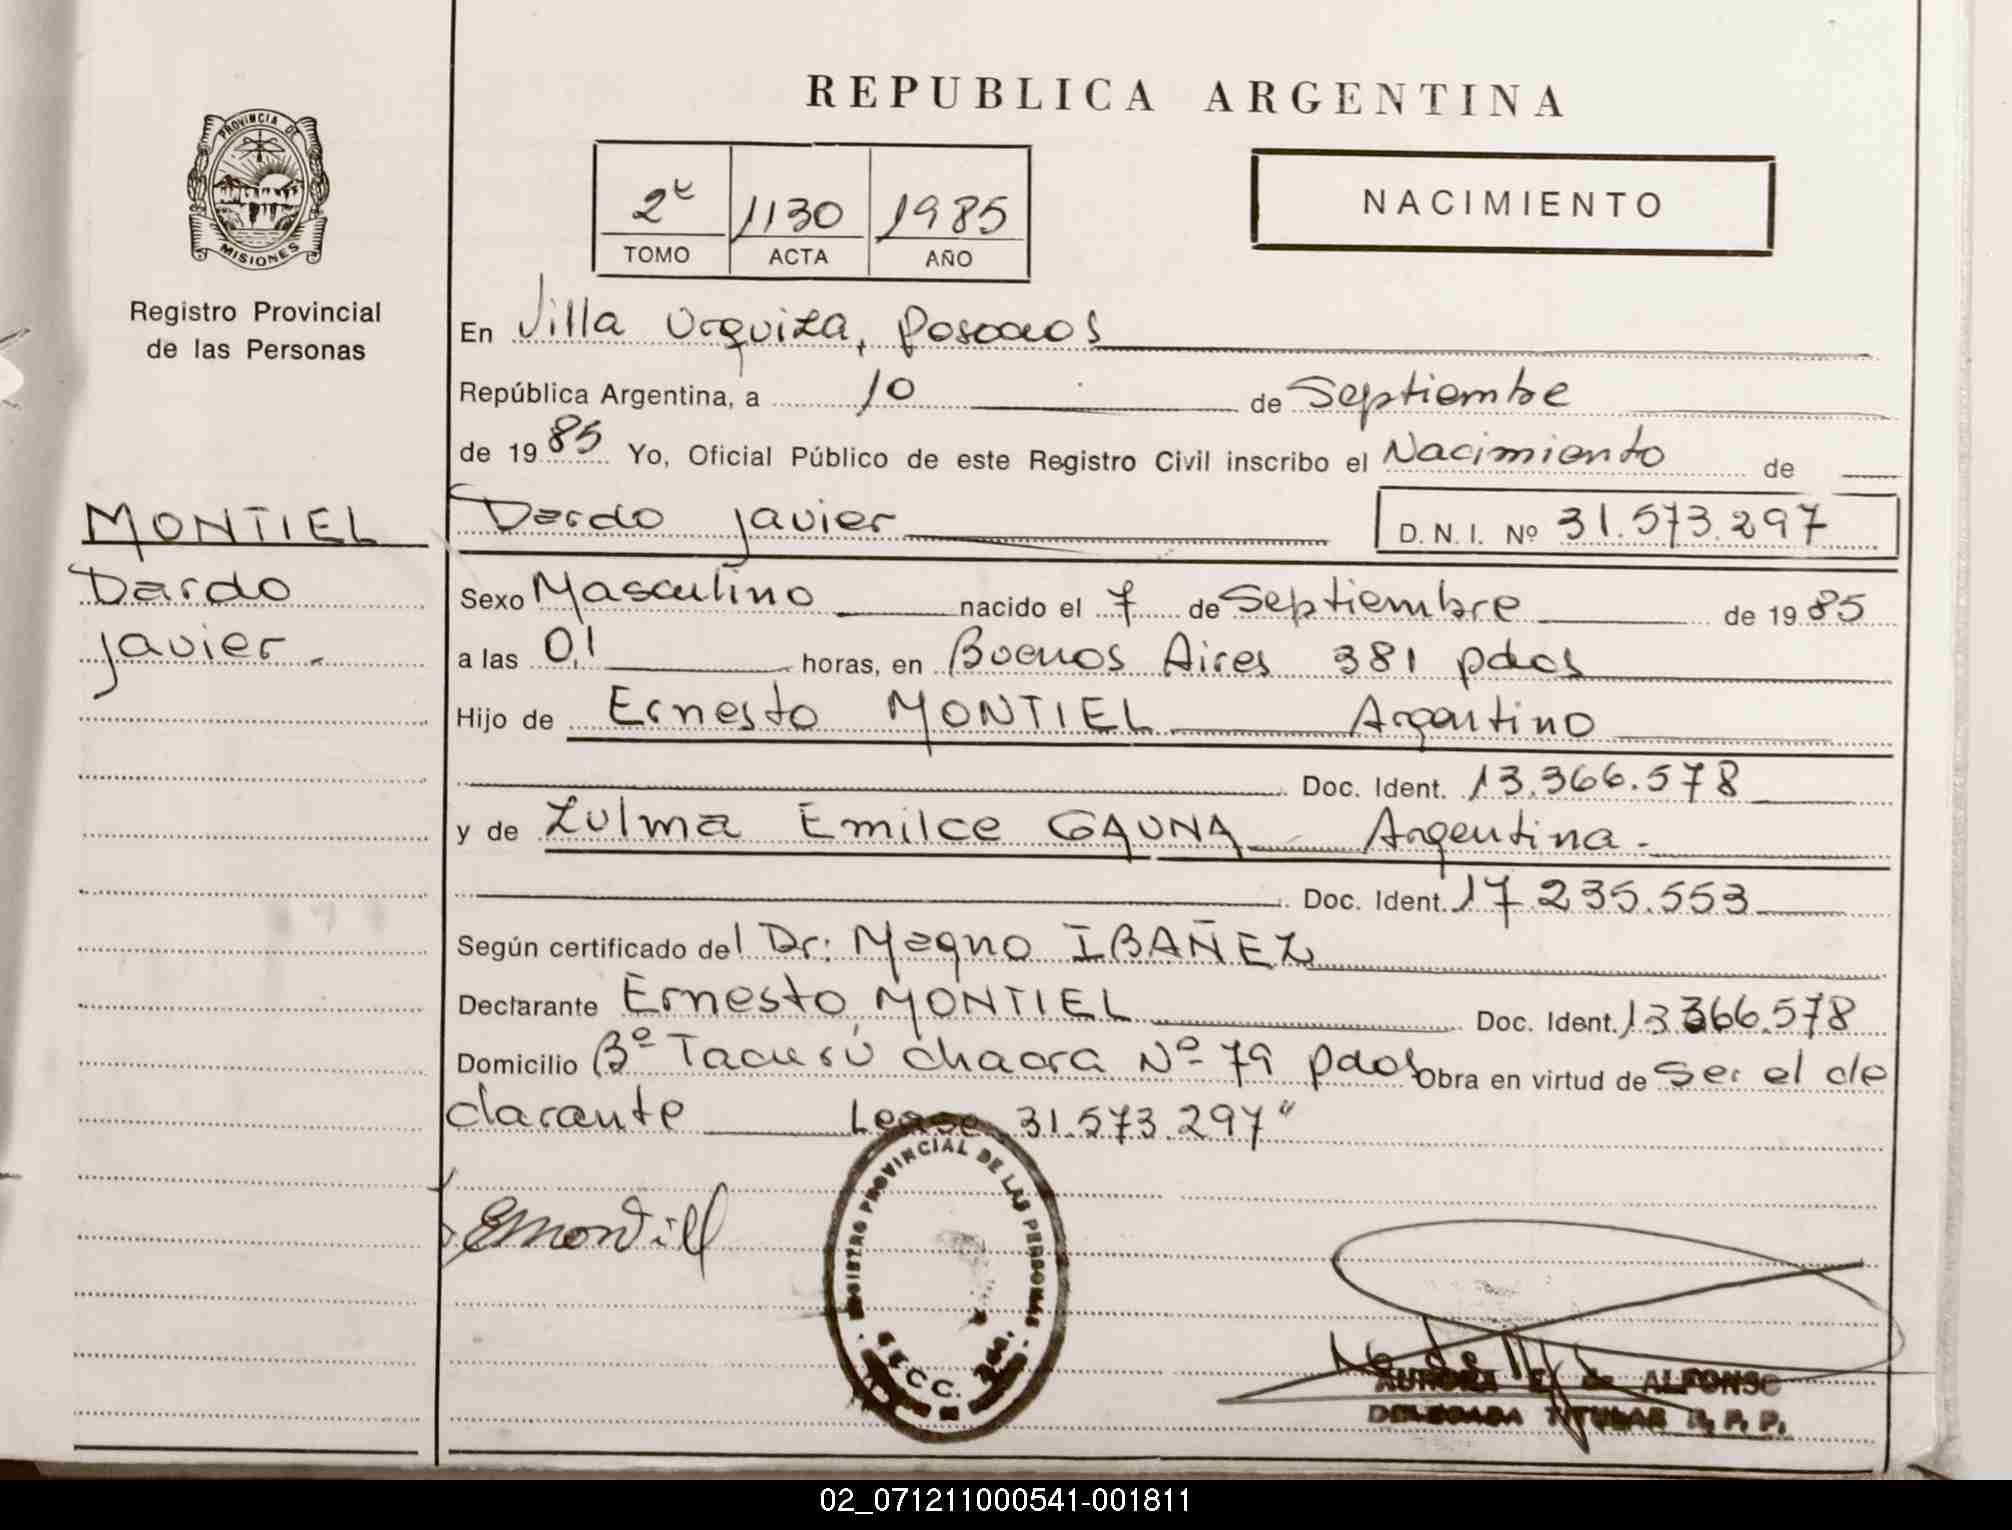 REPUBLICA ARGENTINA
PROVINCIA DE
MISIONES
Registro Provincial
de las Personas
2º 1130 1985
TOMO ACTA AÑO
NACIMIENTO
En Villa Urquiza, Posadas
República Argentina, a 10 de Septiembre
de 1985 Yo, Oficial Público de este Registro Civil inscribo el Nacimiento de
MONTIEL
Dardo
Javier
Dardo Javier D. N. I. Nº 31.573.297
Sexo Masculino nacido el 7 de Septiembre de 1985
a las 01 horas, en Buenos Aires 381 pdas
Hijo de Ernesto MONTIEL Argentino
Doc. Ident. 13.366.578
y de Zulma Emilce GAUNA Argentina.
Doc. Ident. 17.235.553
Según certificado del Dr: Magno IBAÑEZ
Declarante Ernesto MONTIEL Doc. Ident. 13366.578
Domicilio Bº Tacurú chacra Nº 79 pdas Obra en virtud de ser el de
clarante Lease 31.573.297"
EMontiel
REGISTRO PROVINCIAL DE LAS PERSONAS
SECC.
AURORA E. de ALFONSO
DELEGADA TITULAR R. P. P.
02_071211000541-001811